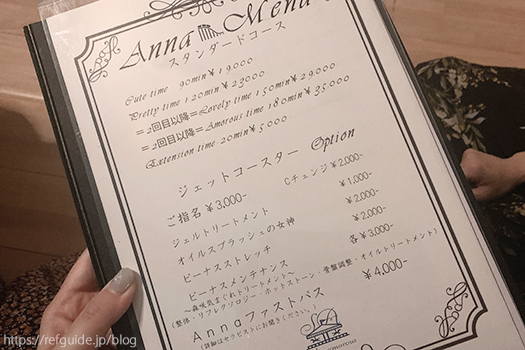 Anna Menu
スタンダードコース
Cute time 90min￥19000
Pretty time 120min￥23000
=2回目以降=Lovely time 150min￥29000
=2回目以降=Amorous time 180min￥35000
Extension time 20min￥5,000
ジェットコースター Option
ご指名￥3,000- Cチェンジ￥2,000-
ジェルトリートメント ￥1,000-
オイルスプラッシュの女神 ￥2,000-
ビーナスストレッチ ￥2,000-
ビーナスメンテナンス 各￥3,000-
～森咲気まぐれトリートメント～
(整体・リフレクソロジー・ホットストーン・骨盤調整・オイルトリートメント)
Annaファストパス ￥4,000-
(詳細はセラピストにお聞きください。)
https://refguide.jp/blog